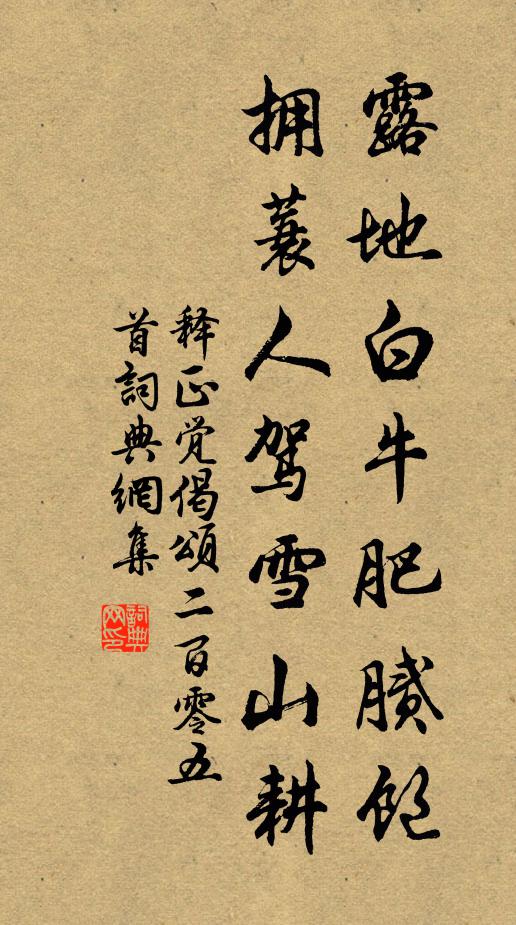 露地白牛肥膩飽
拥蓑人駕雪山耕
释正觉偈頌二百零五
首詞典網集
詞典网印